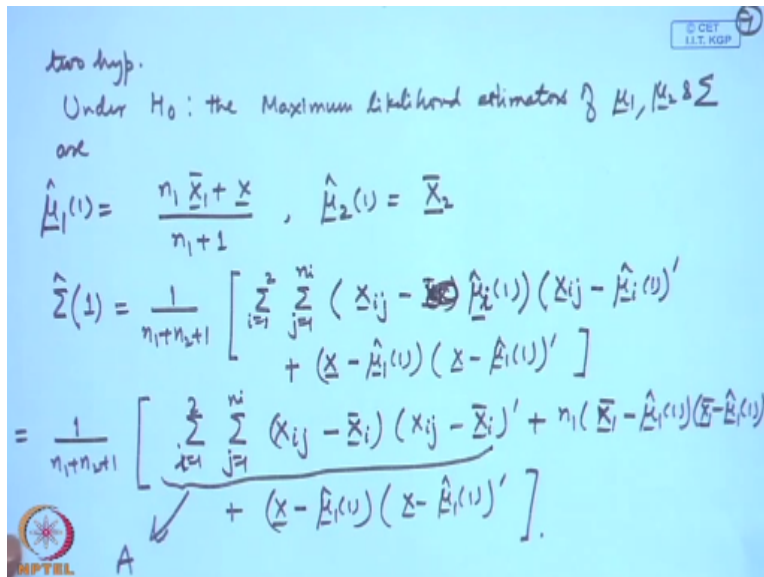 © CET
I.I.T. KGP
7
two hyp.
Under H₀ : the Maximum likelihood estimators of μ̲₁, μ̲₂ & Σ
are
μ̲̂₁(1) = (n₁ x̲̄₁ + x̲) / (n₁ + 1) , μ̲̂₂(1) = x̲̄₂
Σ̂(1) = 1/(n₁+n₂+1) [ Σ_{i=1}^{2} Σ_{j=1}^{nᵢ} ( x̲ᵢⱼ - μ̲̂ᵢ(1)) ( x̲ᵢⱼ - μ̲̂ᵢ(1))′
+ (x̲ - μ̲̂₁(1)) ( x̲ - μ̲̂₁(1))′ ]
= 1/(n₁+n₂+1) [ Σ_{i=1}^{2} Σ_{j=1}^{nᵢ} (xᵢⱼ - x̲̄ᵢ) (xᵢⱼ - x̲̄ᵢ)′ + n₁( x̲̄₁ - μ̲̂₁(1)) (x̲̄ - μ̲̂₁(1))
+ (x̲ - μ̲̂₁(1)) ( x̲ - μ̲̂₁(1))′ ].
A
NPTEL